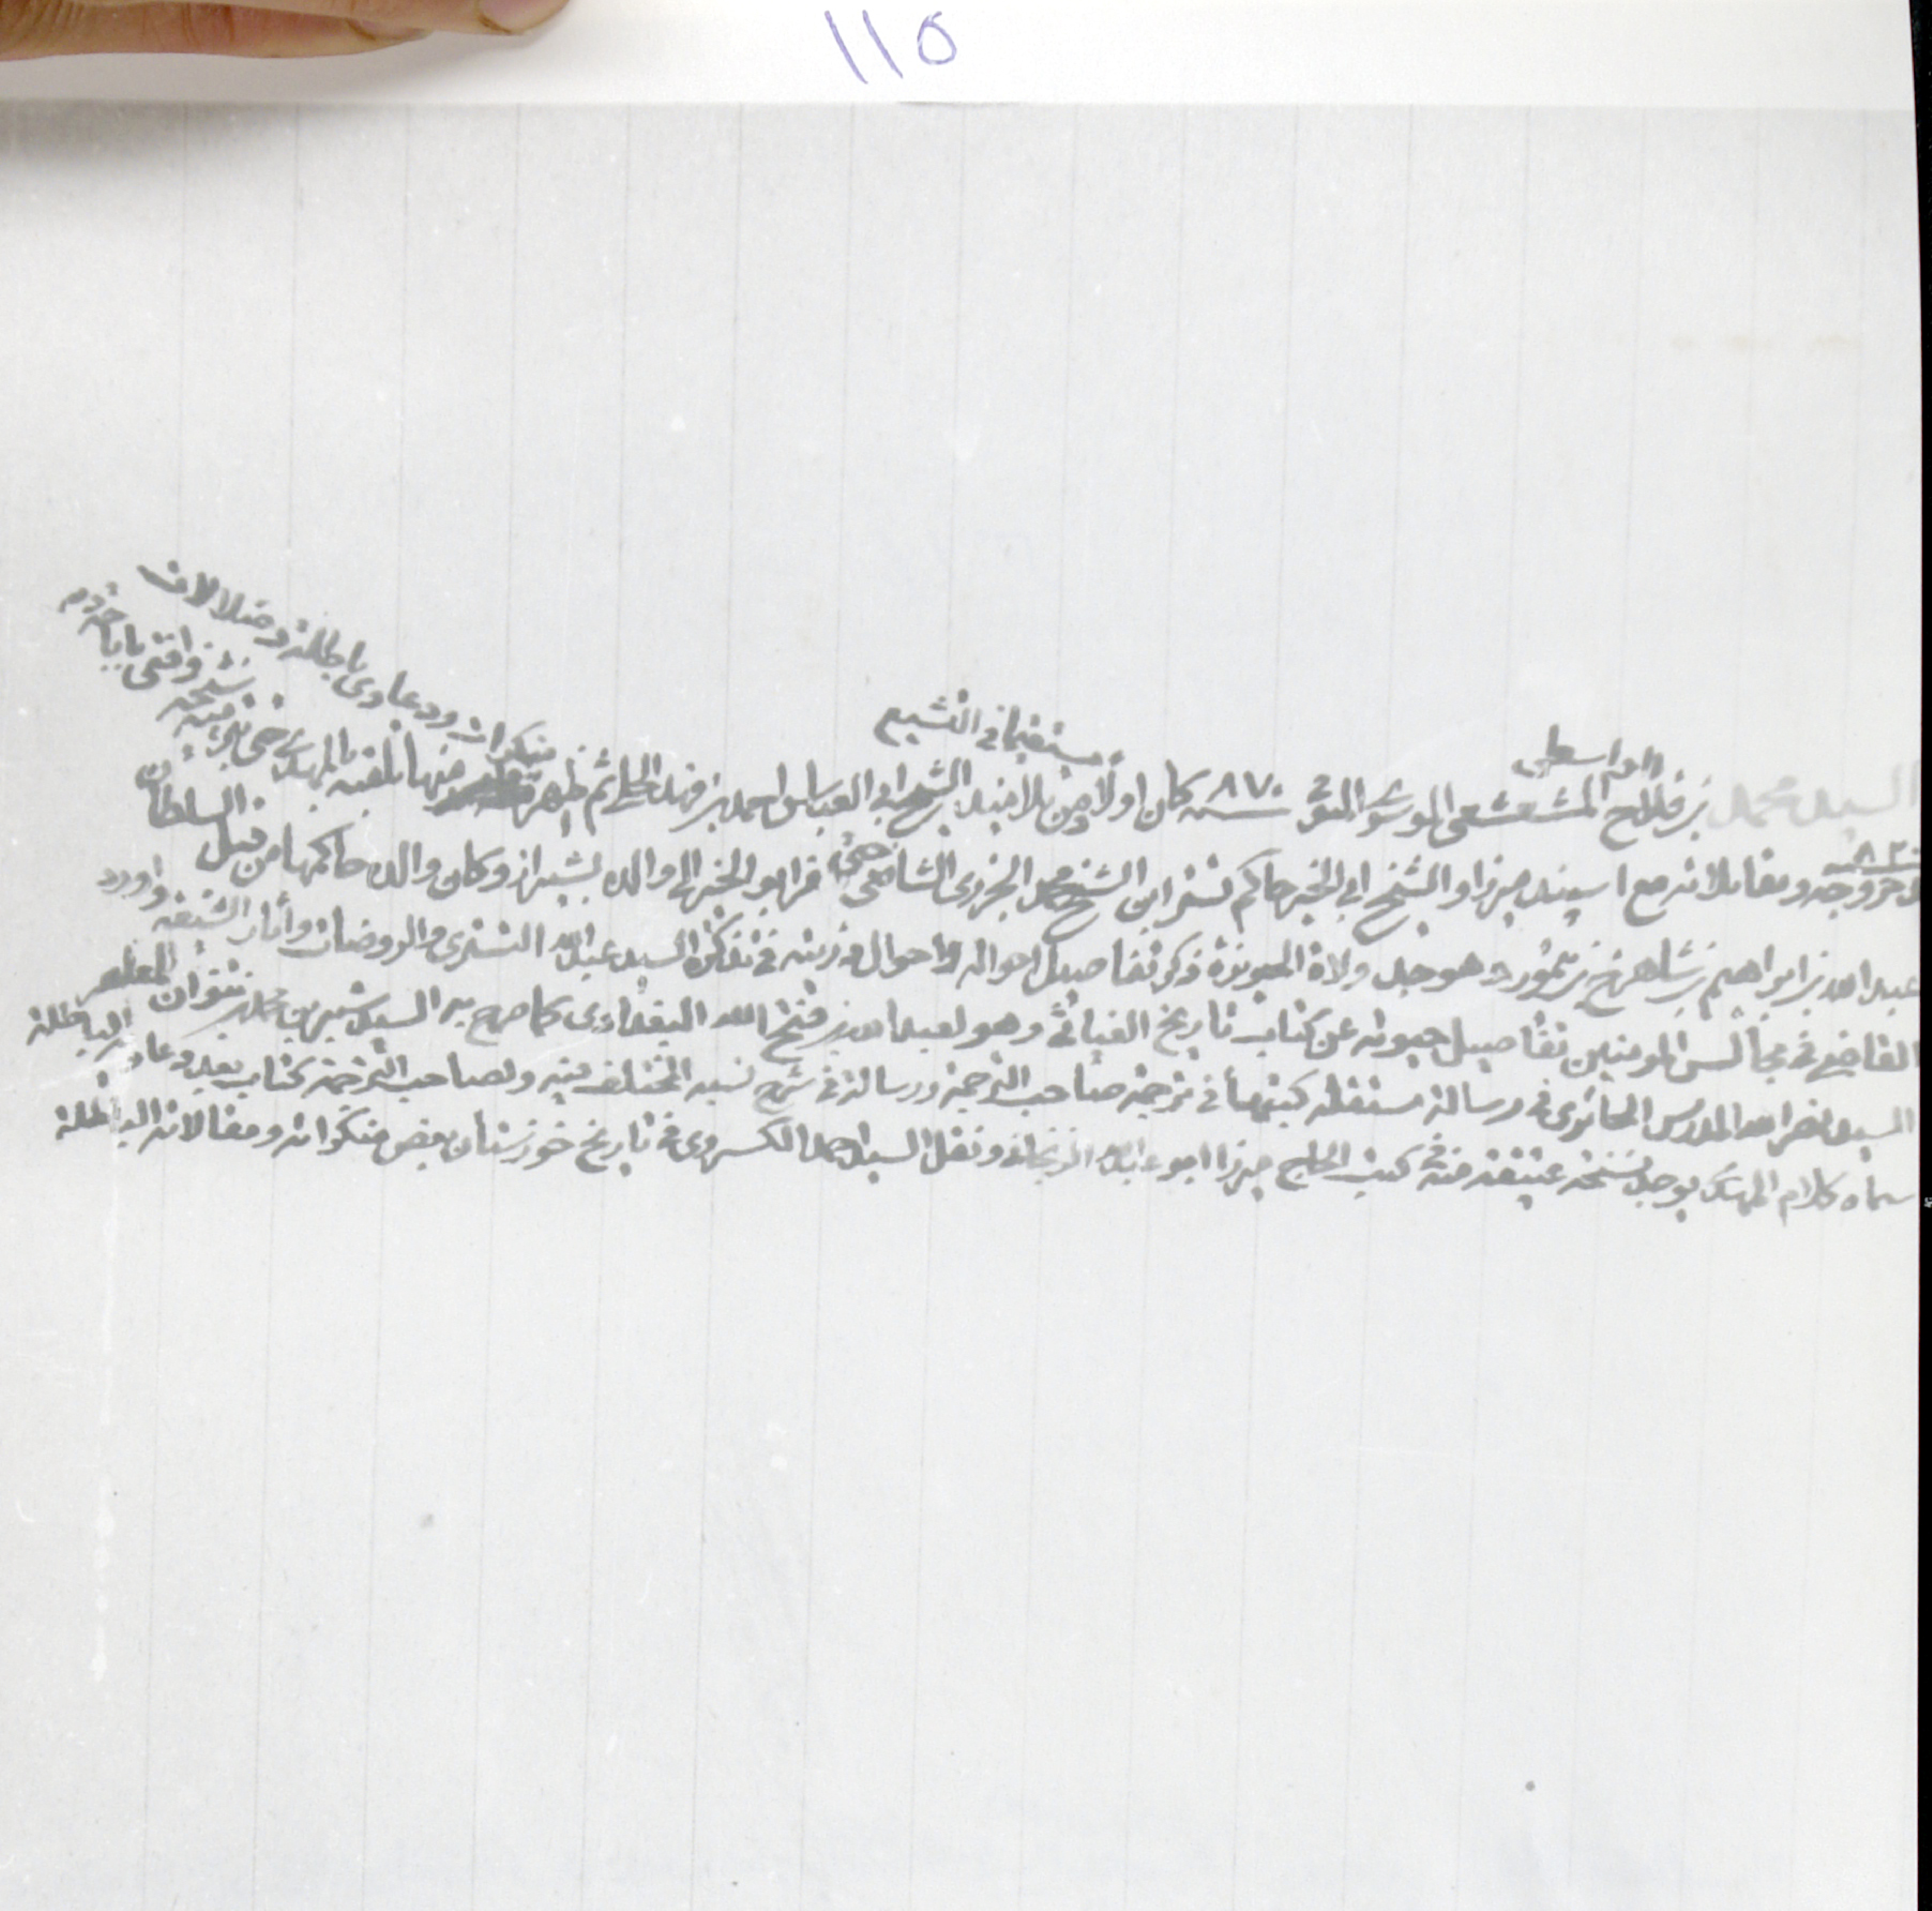 ١١٥
الواسطي
مستقيما في التشيع
السيد محمد بن فلاح المشعشعي الموسوي المتوفى سنة ٨٧٠ كان اولا من تلاميذ الشيخ ابي العباس احمد بن فهد الحلي ثم ظهر منه منكرات ودعاوى باطلة وضلالات
منها تلقبه بالمهدي حتى تبرء منه شيخه وافتى باباحة دم
خروجه ومقابلاته مع اسپند ميرزا والشيخ ابي الخير حاكم تستر ابن الشيخ محمد الجزري الشافعي حتى فر ابو الخير الى والده بشيراز وكان والده حاكمها من قبل السلطان
عبد الله بن ابراهيم بن شاهرخ بن تيمور وهو جد ولاة الحويزة ذكر تفاصيل احواله واحوال ذريته في تذكرة السيد عبد الله التستري والروضات وآثار الشيعة واورد
القاضي في مجالس المومنين تفاصيل حيوته عن كتاب تاريخ الغياثي وهو لعبد الله بن فتح الله البغدادي كما صرح به السيد شبر بن محمد بن ثنوان المعاصر
السيد نصر الله المدرس الحائري في رسالة مستقلة كتبها في ترجمة صاحب الترجمة ورسالة في شرح نسبه المختلف فيه ولصاحب الترجمة كتاب بعد دعاويه الباطلة
سماه كلام المهدي يوجد نسخة عتيقة منه في كتب الحاج ميرزا ابو عبد الله الزنجاني ونقل السيد احمد الكسروي في تاريخ خوزستان بعض منكراته ومقالاته الباطلة